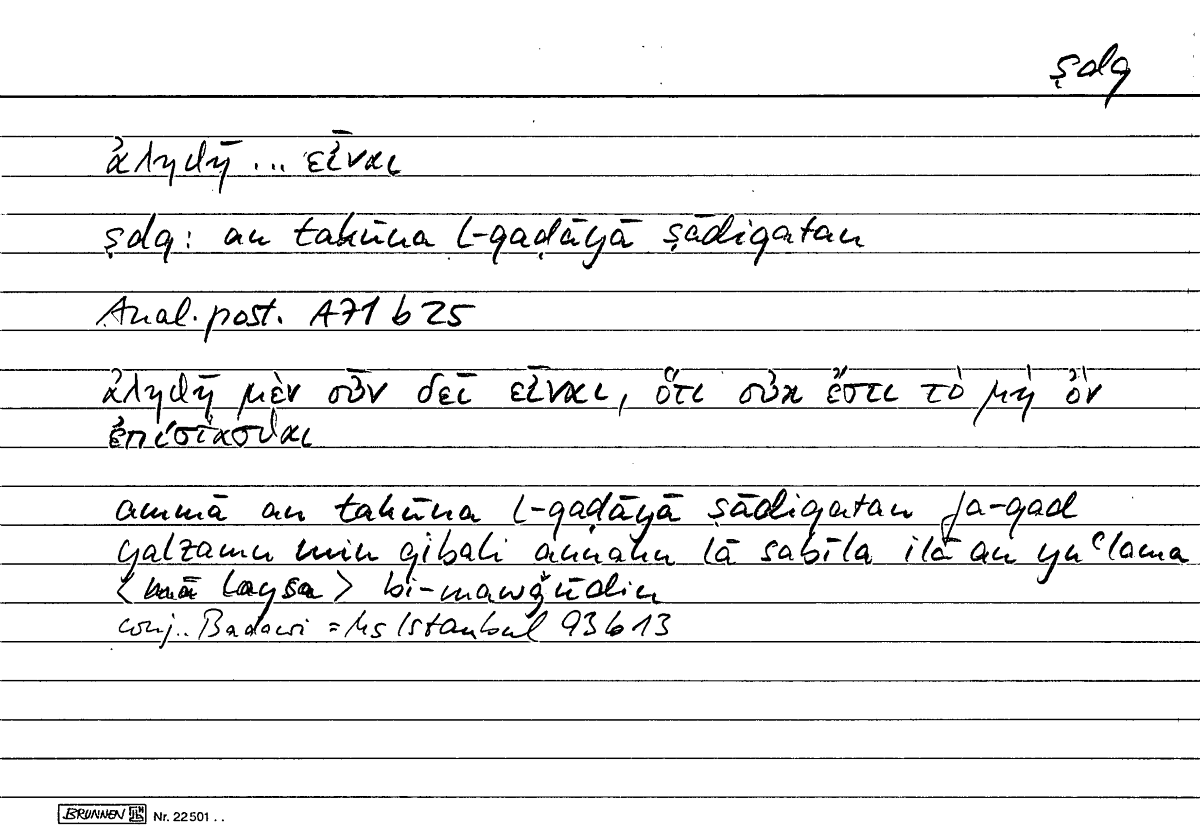 ṣdq
ἀληθῆ ... εἶναι
ṣdq: an takūna l-qaḍāyā ṣādiqatan
Anal. post. A71 b 25
ἀληθῆ μὲν οὖν δεῖ εἶναι, ὅτι οὐκ ἔστι τὸ μὴ ὂν
ἐπίστασθαι
ammā an takūna l-qaḍāyā ṣādiqatan fa-qad
yalzamu min qibali annahu lā sabīla ilā an yuʿlama
<mā laysa> bi-mawǧūdin
conj. Badawi = Ms Istanbul 93 b 13
BRUNNEN Nr. 22 501 . .